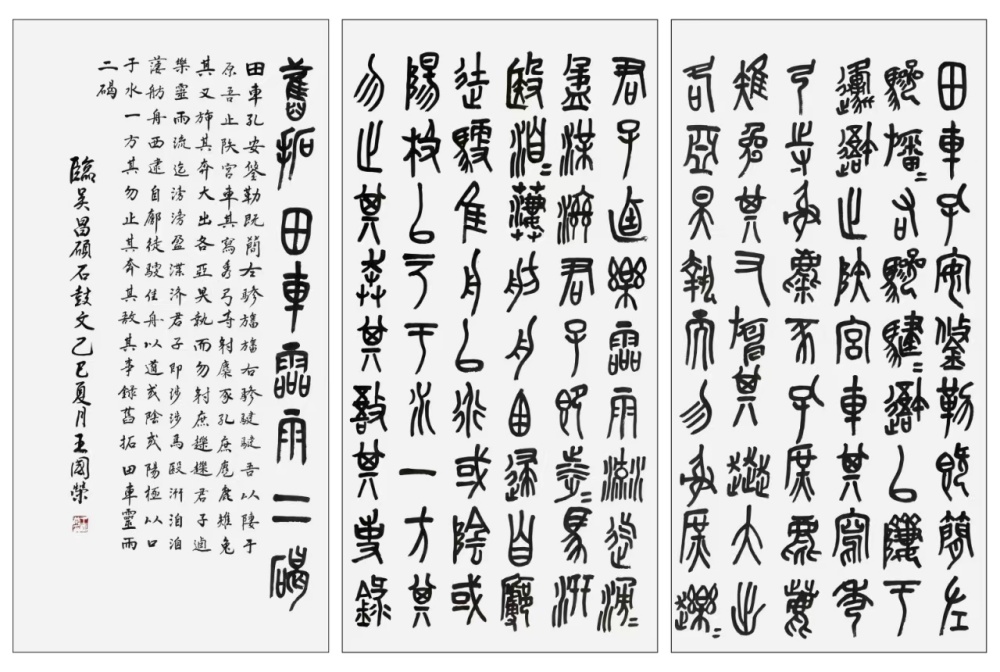 田車孔安鋚勒既簡左
驂旛=右驂騝=䢐以隮于
邍䢐止陕宮車其寫秀
弓寺射麋豕孔庶麀鹿
雉兔其又其大出
各亞昊執而勿射庶趮=
君子逌樂霝雨流迄湧=
盈渫滋君子即涉=馬汧
殹洎=萋=舫舟西逮自廓
徒馭隹舟以行或陰或
陽极以戶于水一方其
勿止其奔其敔其事錄
舊拓田車霝雨二碣
田車孔安鋚勒既簡左驂旛旛右驂騝騝吾以隮于
原吾止陕宮車其寫秀弓寺射麋豕孔庶麀鹿雉兔
其又旆其奔大出各亞昊執而勿射庶趮趮君子逌
樂靈雨流迄滂滂盈渫济君子即涉涉馬殹汧洎洎
萋舫舟西逮自廊徒馭隹舟以道或陰或陽極以口
于水一方其勿止其奔其敔其事錄舊拓田車靈雨
二碣
臨吳昌碩石鼓文乙巳夏月王國榮